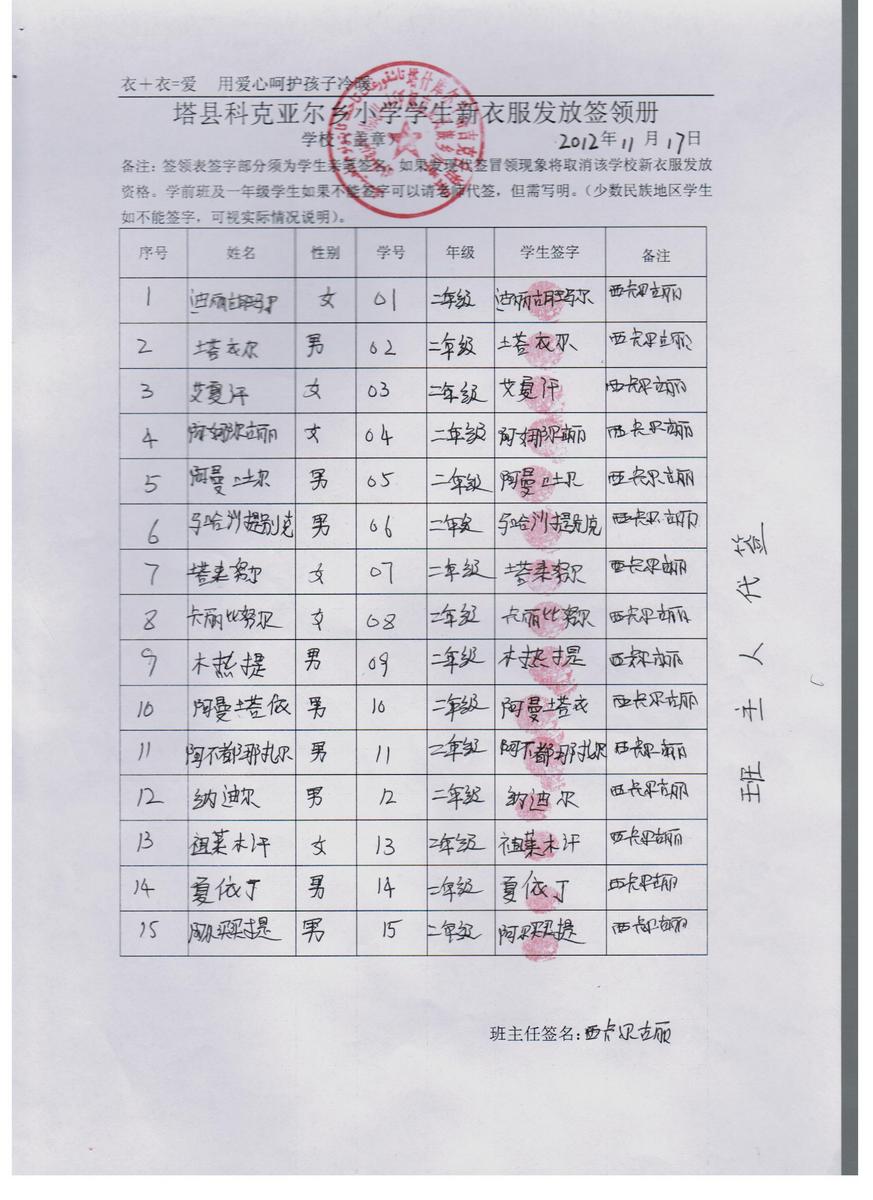 衣＋衣=爱 用爱心呵护孩子冷暖
塔县科克亚尔乡小学学生新衣服发放签领册
学校（盖章） 2012年11月17日
备注：签领表签字部分须为学生亲笔签名，如果发现代签冒领现象将取消该学校新衣服发放
资格。学前班及一年级学生如果不能签字可以请老师代签，但需写明。（少数民族地区学生
如不能签字，可视实际情况说明）。
序号 姓名 性别 学号 年级 学生签字 备注
1 迪丽胡玛尔 女 01 二年级 迪丽胡玛尔 西卡尔古丽
2 塔衣尔 男 02 二年级 塔衣尔 西卡尔古丽
3 艾夏汗 女 03 二年级 艾夏汗 西卡尔古丽
4 阿娜尔古丽 女 04 二年级 西卡尔古丽
5 阿曼土尔 男 05 二年级 阿曼土尔 西卡尔古丽
6 男 06 二年级 西卡尔古丽
7 塔来努尔 女 07 二年级 塔来努尔 西卡尔古丽
8 卡丽比努尔 女 08 二年级 卡丽比努尔 西卡尔古丽
9 木热提 男 09 二年级 木热提 西卡尔古丽
10 阿曼塔依 男 10 二年级 阿曼塔衣 西卡尔古丽
11 阿不都那扎尔 男 11 二年级 阿不都那扎尔 西卡尔古丽
12 纳迪尔 男 12 二年级 纳迪尔 西卡尔古丽
13 祖莱木汗 女 13 二年级 祖莱木汗 西卡尔古丽
14 夏依丁 男 14 二年级 夏依丁 西卡尔古丽
15 男 15 二年级 西卡尔古丽
班主任签名：西卡尔古丽
班主人代签